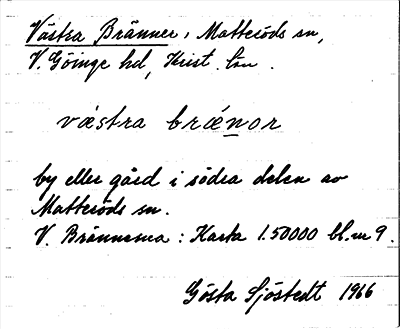 Västra Bränner, Matteröds sn,
V. Göinge hd, Krist. län.
væstra brænor
by eller gård i södra delen av
Matteröds sn.
V. Brännarna: Karta 1:50000 bl. nr 9.
Gösta Sjöstedt 1966